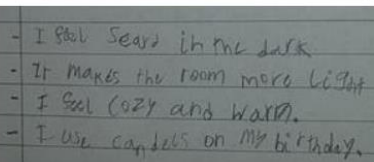 - I feel Seard in the dark
- It makes the room more Light
- I feel Cozy and warm.
- I use candels on my birthday.